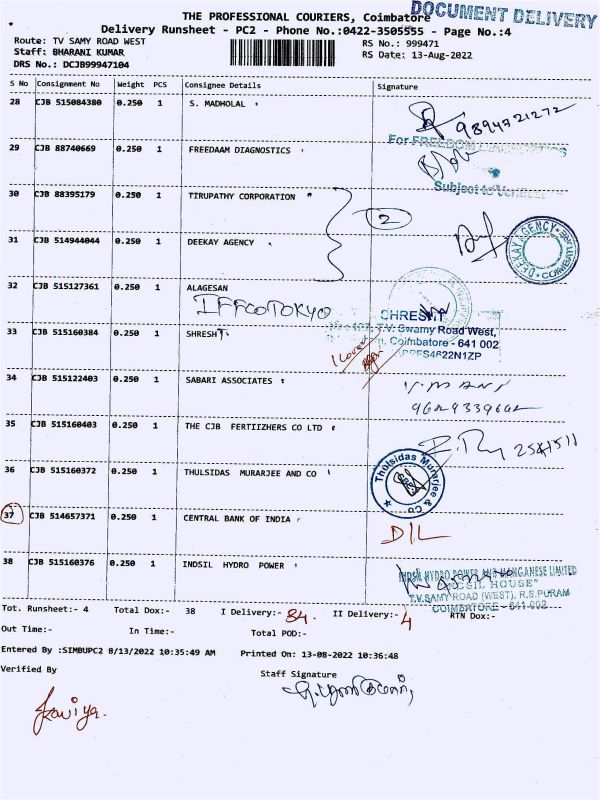 THE PROFESSIONAL COURIERS, Coimbatore
DOCUMENT DELIVERY
Delivery Runsheet - PC2 - Phone No.:0422-3505555 - Page No.:4
Route: TV SAMY ROAD WEST RS No.: 999471
Staff: BHARANI KUMAR RS Date: 13-Aug-2022
DRS No.: DCJB99947104
S No Consignment No Weight PCS Consignee Details Signature
28 CJB 515084380 0.250 1 S. MADHOLAL
9894321272
29 CJB 88740669 0.250 1 FREEDAAM DIAGNOSTICS
For FREEDOM DIAGNOSTICS
Subject to Verified
30 CJB 88395179 0.250 1 TIRUPATHY CORPORATION
2
31 CJB 514944044 0.250 1 DEEKAY AGENCY
DEEKAY AGENCY
COIMBATORE
32 CJB 515127361 0.250 1 ALAGESAN
IFFCOTOKYO
33 CJB 515160384 0.250 1 SHRESHT
SHRESHT
T.V. Swamy Road West,
Coimbatore - 641 002
34 CJB 515122403 0.250 1 SABARI ASSOCIATES
35 CJB 515160403 0.250 1 THE CJB FERTIIZHERS CO LTD
36 CJB 515160372 0.250 1 THULSIDAS MURARJEE AND CO
Tholsidas Murarjee & Co
37 CJB 514657371 0.250 1 CENTRAL BANK OF INDIA
D/L
38 CJB 515160376 0.250 1 INDSIL HYDRO POWER
INDSIL HYDRO POWER AND MANGANESE LIMITED
"INDSIL HOUSE"
T.V.SAMY ROAD (WEST), R.S.PURAM
COIMBATORE - 641 002
Tot. Runsheet:- 4 Total Dox:- 38 I Delivery:- 34. II Delivery:- 4 RTN Dox:-
Out Time:- In Time:- Total POD:-
Entered By :SIMBUPC2 8/13/2022 10:35:49 AM Printed On: 13-08-2022 10:36:48
Verified By Staff Signature
Kaviya.